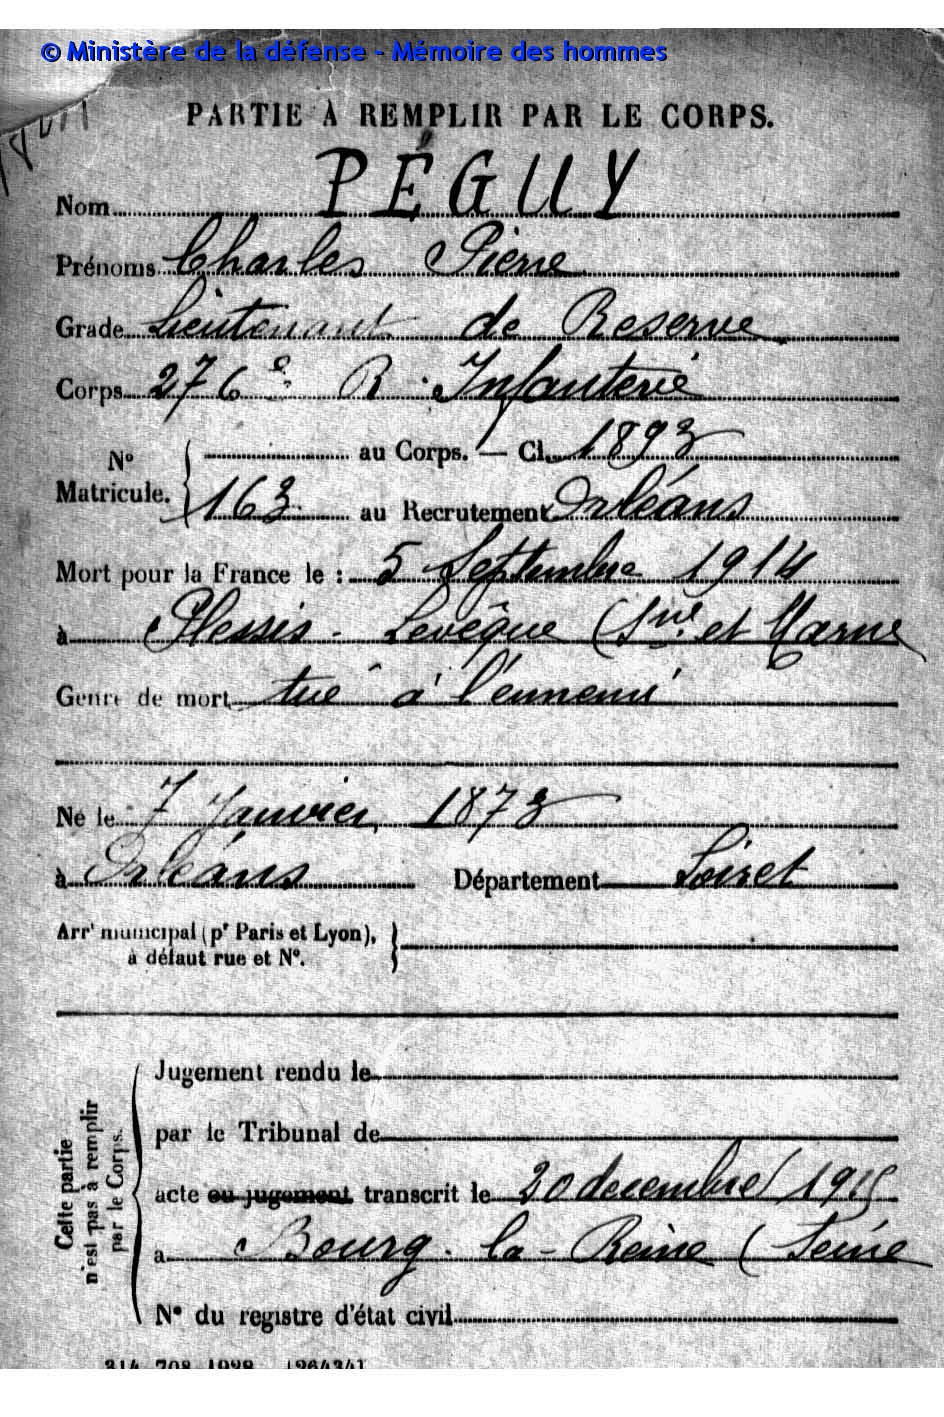 © Ministère de la défense - Mémoire des hommes
PARTIE À REMPLIR PAR LE CORPS.
Nom PÉGUY
Prénoms Charles Pierre
Grade Lieutenant de Reserve
Corps 276e R. Infanterie
N° Matricule. { au Corps. — Cl. 1893
163 au Recrutement Orléans
Mort pour la France le : 5 Septembre 1914
à Plessis - Levêque (Sne et Marne
Genre de mort tué à l'ennemi
Né le 7 Janvier 1873
à Orléans Département Loiret
Arrt municipal (pr Paris et Lyon),
à défaut rue et N°.
Cette partie n'est pas à remplir par le Corps.
Jugement rendu le
par le Tribunal de
acte ou jugement transcrit le 20 decembre 1915
à Bourg-la-Reine (Seine
N° du registre d'état civil
314 708 1928 [26434]